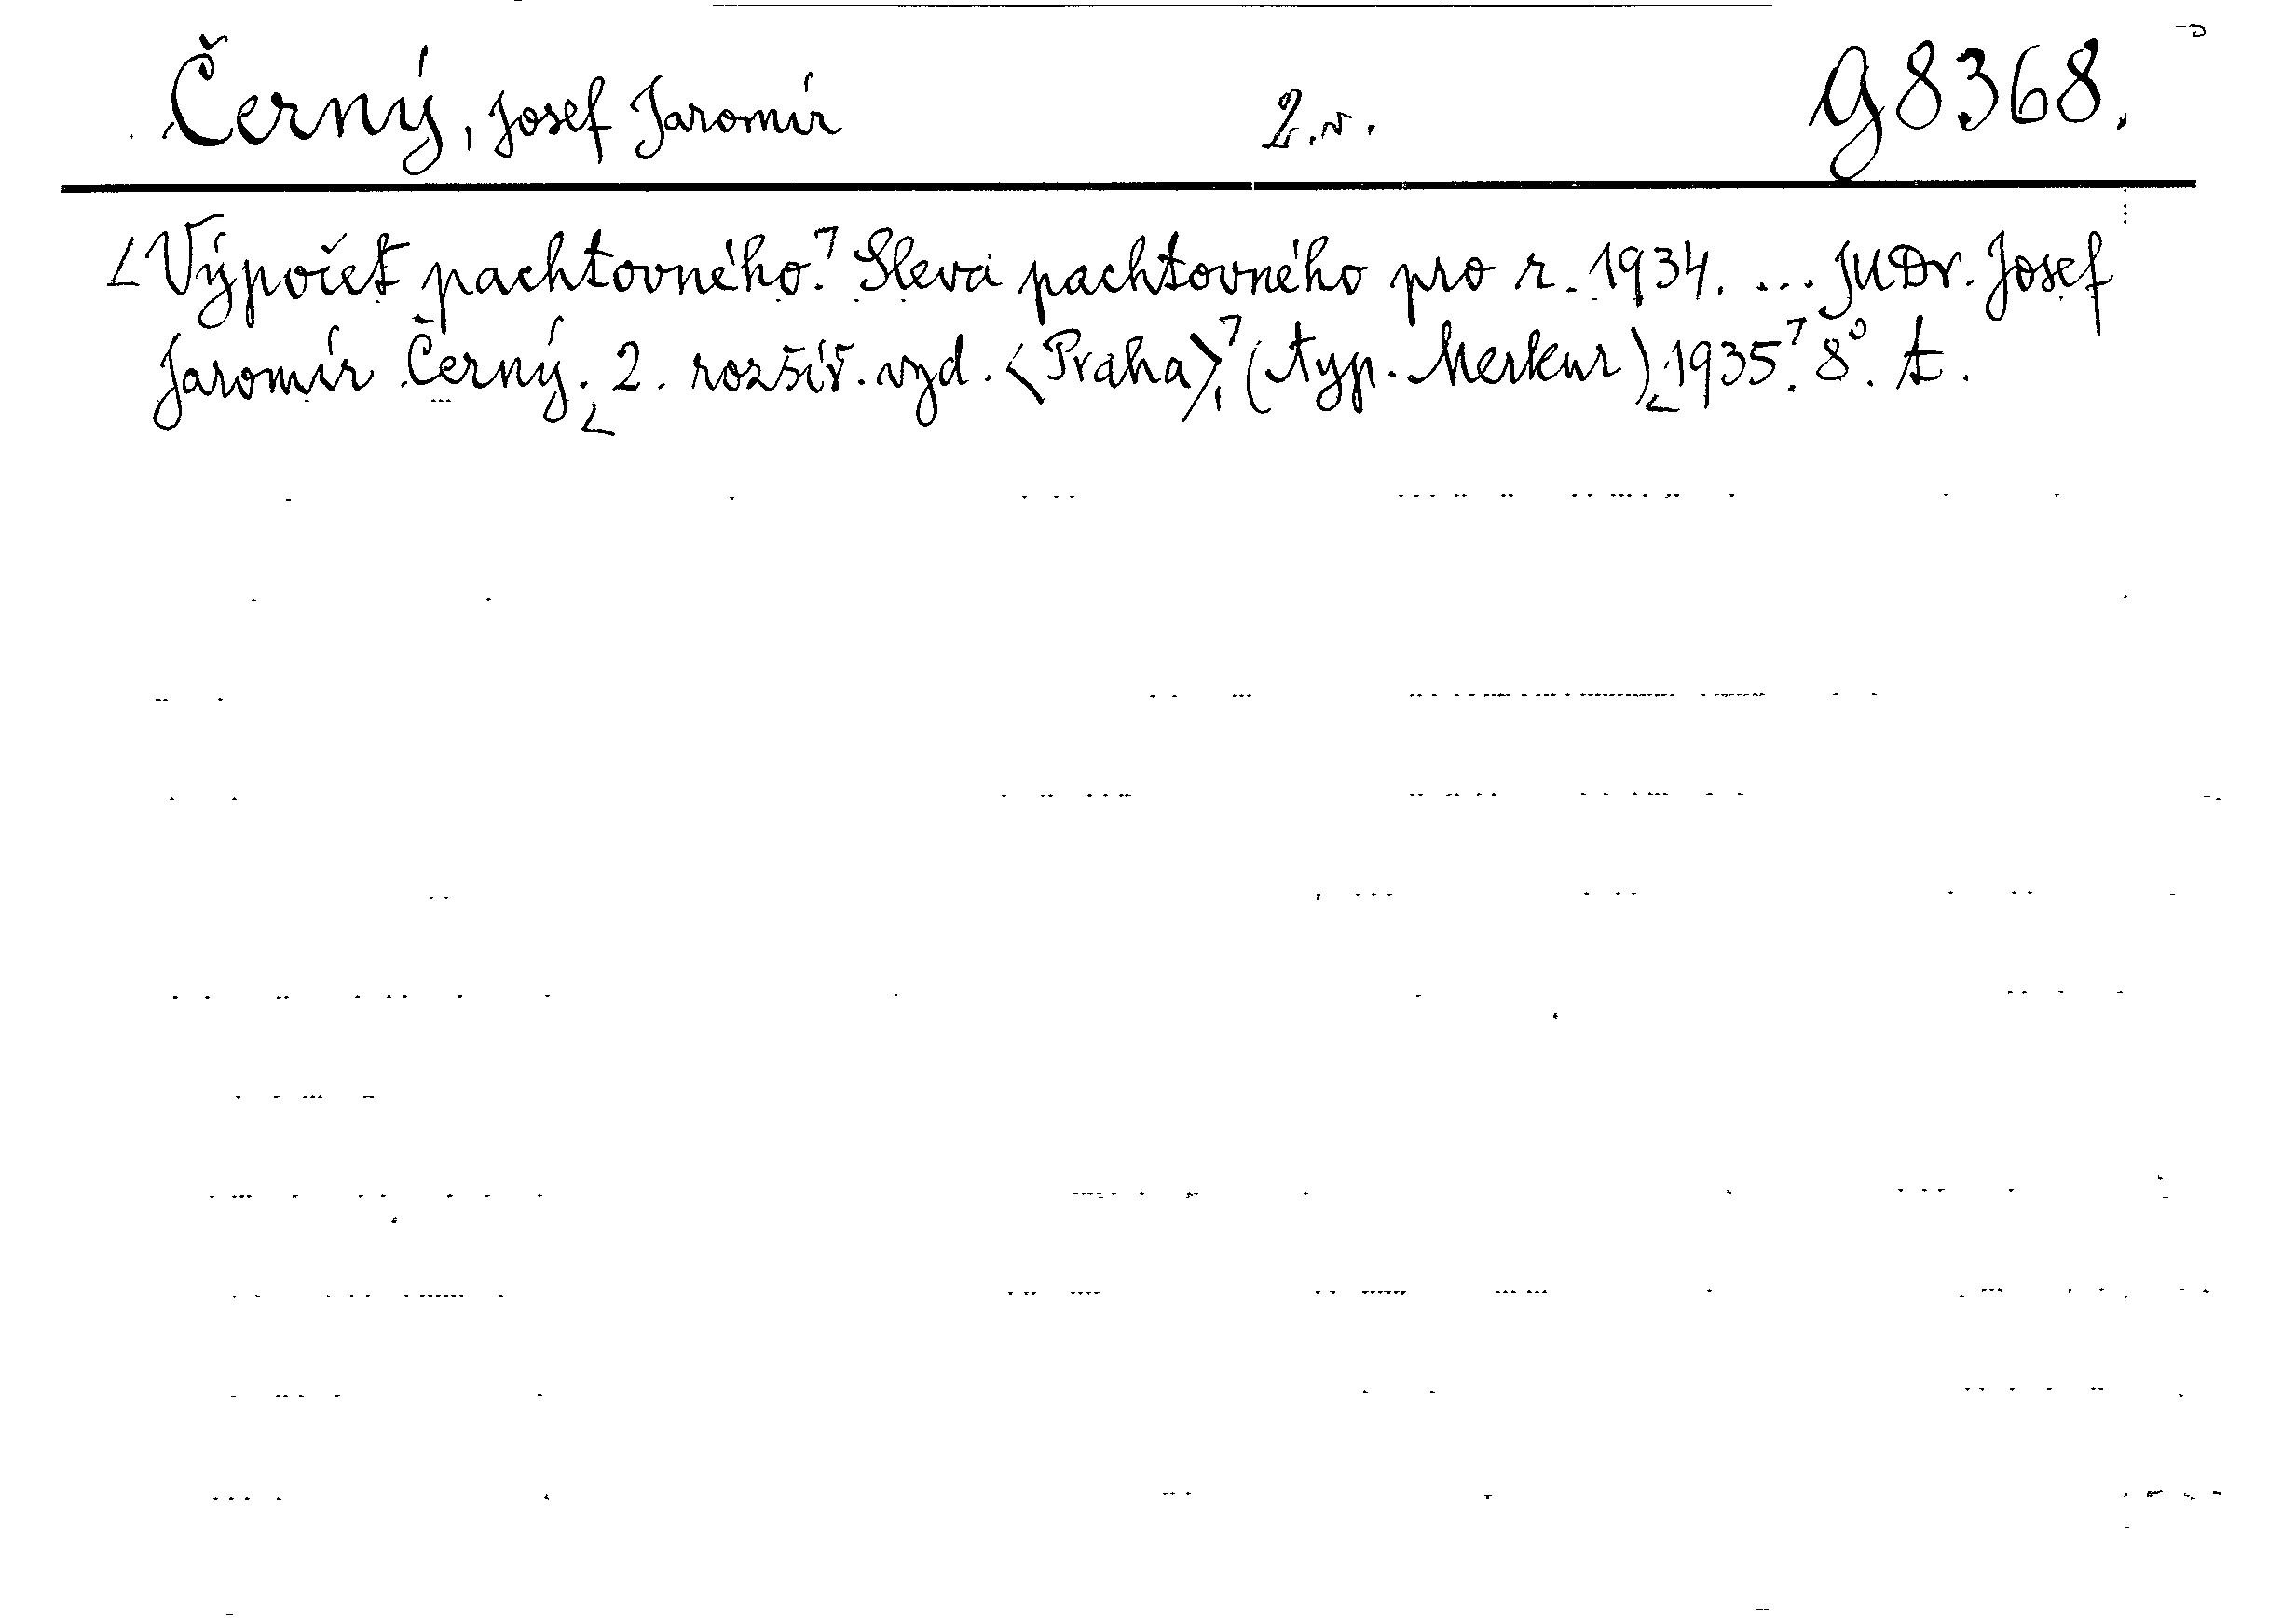 Černý, Josef Jaromír 2.v. G 8368.
Výpočet pachtovného. Sleva pachtovného pro r. 1934. ... JUDr. Josef
Jaromír Černý. 2. rozšíř. vyd. <Praha>, (typ. Merkur) 1935. 8°. t.